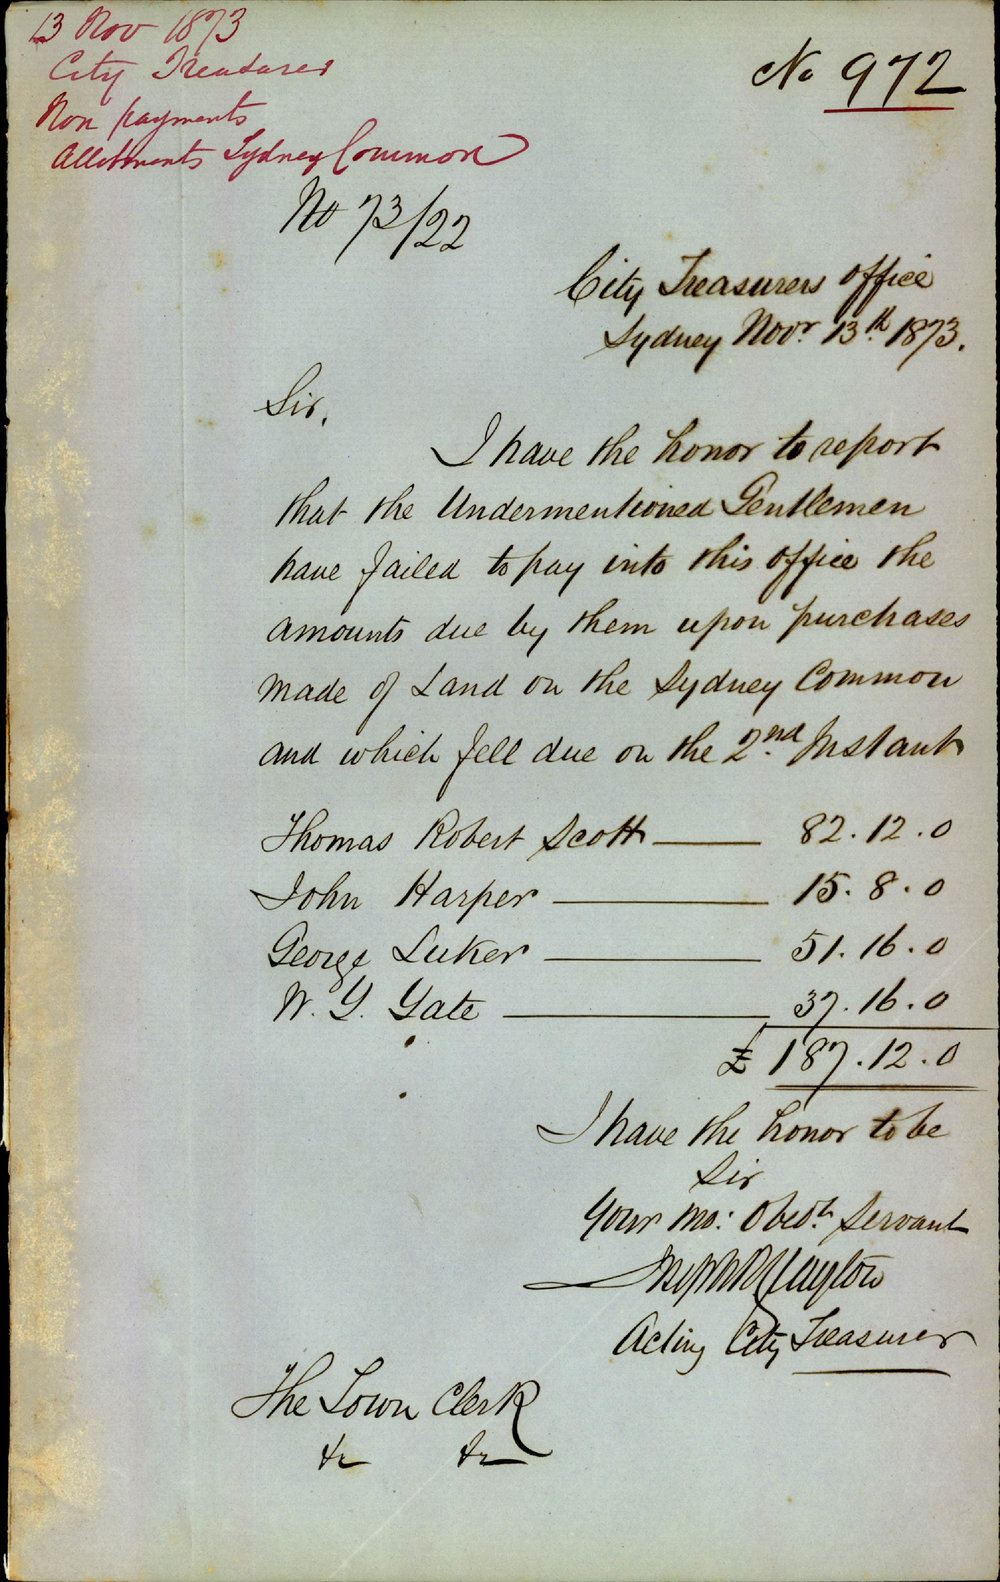 13 Nov 1873
City Treasurer
Non payments
Allotments Sydney Common
No 972
No 73/22
City Treasurers Office
Sydney Novr. 13th 1873.
Sir,
I have the honor to report
that the Undermentioned Gentlemen
have failed to pay into this office the
amounts due by them upon purchases
made of Land on the Sydney Common
and which fell due on the 2nd Instant
Thomas Robert Scott 82.12.0
John Harper 15.8.0
George Luker 51.16.0
W. Y. Yate 37.16.0
£ 187.12.0
I have the honor to be
Sir
Your Mo: Obedt. Servant
Acting City Treasurer
The Town Clerk
&c &c